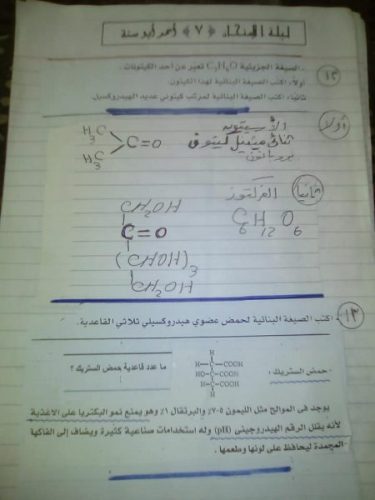 ليلة الامتحان ﴿٧﴾ أحمد أبو سنة
١٢ - الصيغة الجزيئية C₃H₆O تعبر عن أحد الكيتونات .
أولاً : اكتب الصيغة البنائية لهذا الكيتون.
ثانيا : اكتب الصيغة البنائية لمركب كيتوني عديد الهيدروكسيل.
أولا
الأسيتون
ثنائى ميثيل كيتون
بروبانون
H₃C
C=O
H₃C
ثانيا
الفركتوز
C₆H₁₂O₆
CH₂OH
C=O
(CHOH)₃
CH₂OH
١٣ - اكتب الصيغة البنائية لحمض عضوي هيدروكسيلي ثلاثي القاعدية.
حمض الستريك :
H
H-C-COOH
HO-C-COOH
H-C-COOH
H
ما عدد قاعدية حمض الستريك ؟
يوجد فى الموالح مثل الليمون ٥-٧٪ والبرتقال ١٪ وهو يمنع نمو البكتريا على الاغذية
لأنه يقلل الرقم الهيدروجينى (pH) وله استخدامات صناعية كثيرة ويضاف إلى الفاكهة
المجمدة ليحافظ على لونها وطعمها .